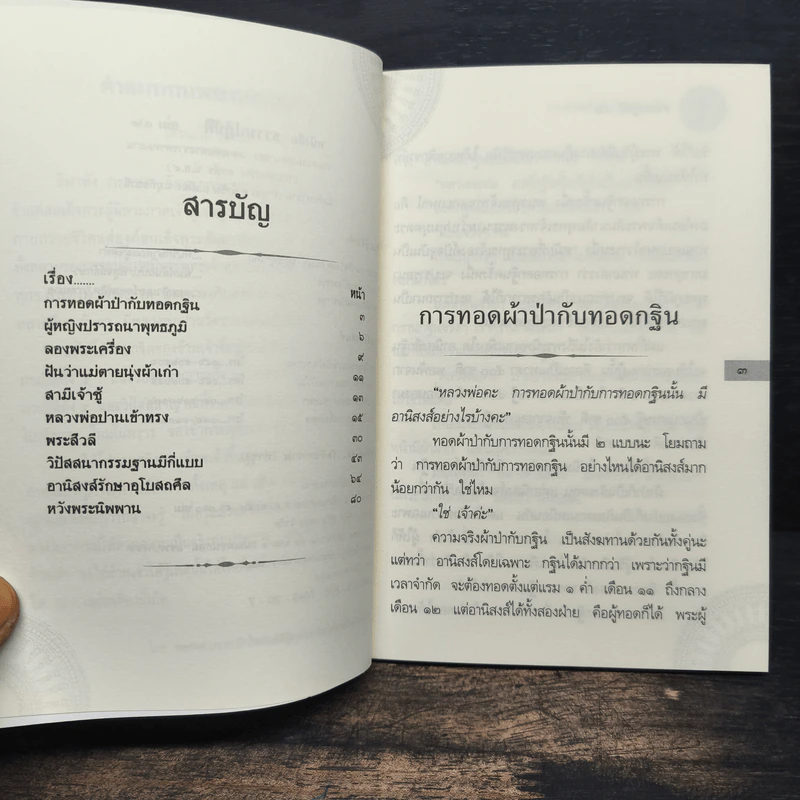 สารบัญ
เรื่อง....... หน้า
การทอดผ้าป่ากับทอดกฐิน ๓
ผู้หญิงปรารถนาพุทธภูมิ ๖
ลองพระเครื่อง ๙
ฝันว่าแม่ตายนุ่งผ้าเก่า ๑๑
สามีเจ้าชู้ ๑๓
หลวงพ่อปานเข้าทรง ๑๕
พระสีวลี ๓๐
วิปัสสนากรรมฐานมีกี่แบบ ๔๓
อานิสงส์รักษาอุโบสถศีล ๖๔
หวังพระนิพพาน ๘๐
การทอดผ้าป่ากับทอดกฐิน
๓
“หลวงพ่อคะ การทอดผ้าป่ากับการทอดกฐินนั้น มี
อานิสงส์อย่างไรบ้างคะ”
ทอดผ้าป่ากับการทอดกฐินนั้นมี ๒ แบบนะ โยมถาม
ว่า การทอดผ้าป่ากับการทอดกฐิน อย่างไหนได้อานิสงส์มาก
น้อยกว่ากัน ใช่ไหม
“ใช่ เจ้าค่ะ”
ความจริงผ้าป่ากับกฐิน เป็นสังฆทานด้วยกันทั้งคู่นะ
แต่ทว่า อานิสงส์โดยเฉพาะ กฐินได้มากกว่า เพราะว่ากฐินมี
เวลาจำกัด จะต้องทอดตั้งแต่แรม ๑ ค่ำ เดือน ๑๑ ถึงกลาง
เดือน ๑๒ แต่อานิสงส์ได้ทั้งสองฝ่าย คือผู้ทอดก็ได้ พระผู้